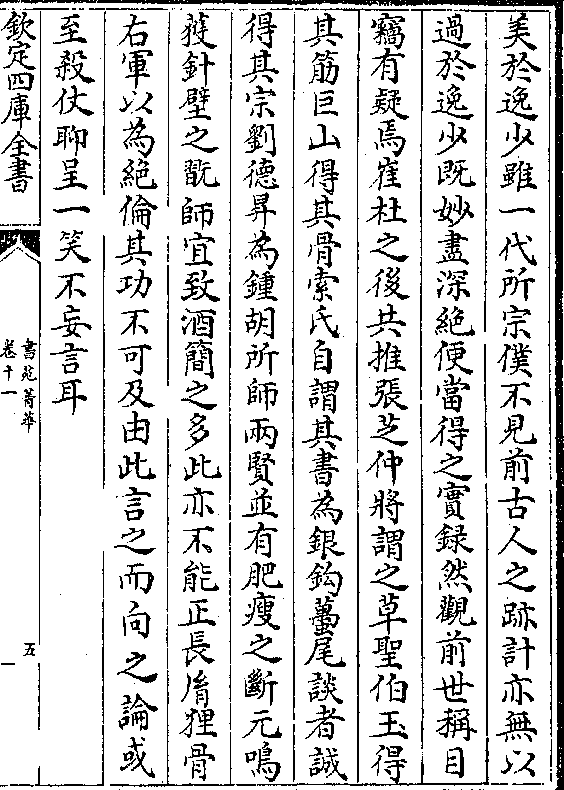 美於逸少雖一代所宗僕不見前古人之跡計亦無以
過於逸少既妙盡深絶便當得之實録然觀前世稱目
竊有疑焉崔杜之後共推張芝仲將謂之草聖伯玉得
其筋巨山得其骨索氏自謂其書為銀鈎蠆尾談者誠
得其宗劉德昇為鍾胡所師兩賢並有肥瘦之斷元鳴
獲針壁之翫師宜致酒簡之多此亦不能正長胤狸骨
右軍以為絶倫其功不可及由此言之而向之論或
至殺仗聊呈一笑不妄言耳
欽定四庫全書
書苑菁華
卷十一
五